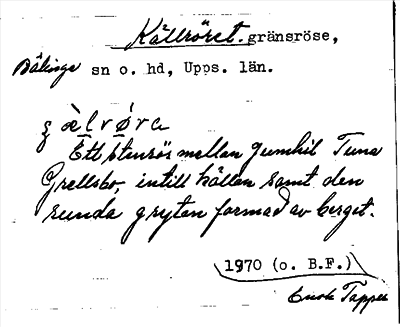 Källröret. gränsröse,
Bälinge sn o. hd, Upps. län.
Ett stenrös mellan Gumhil Tuna
Grellsbo, intill källan samt den
runda grytan formad av berget.
1970 (o. B.F.)